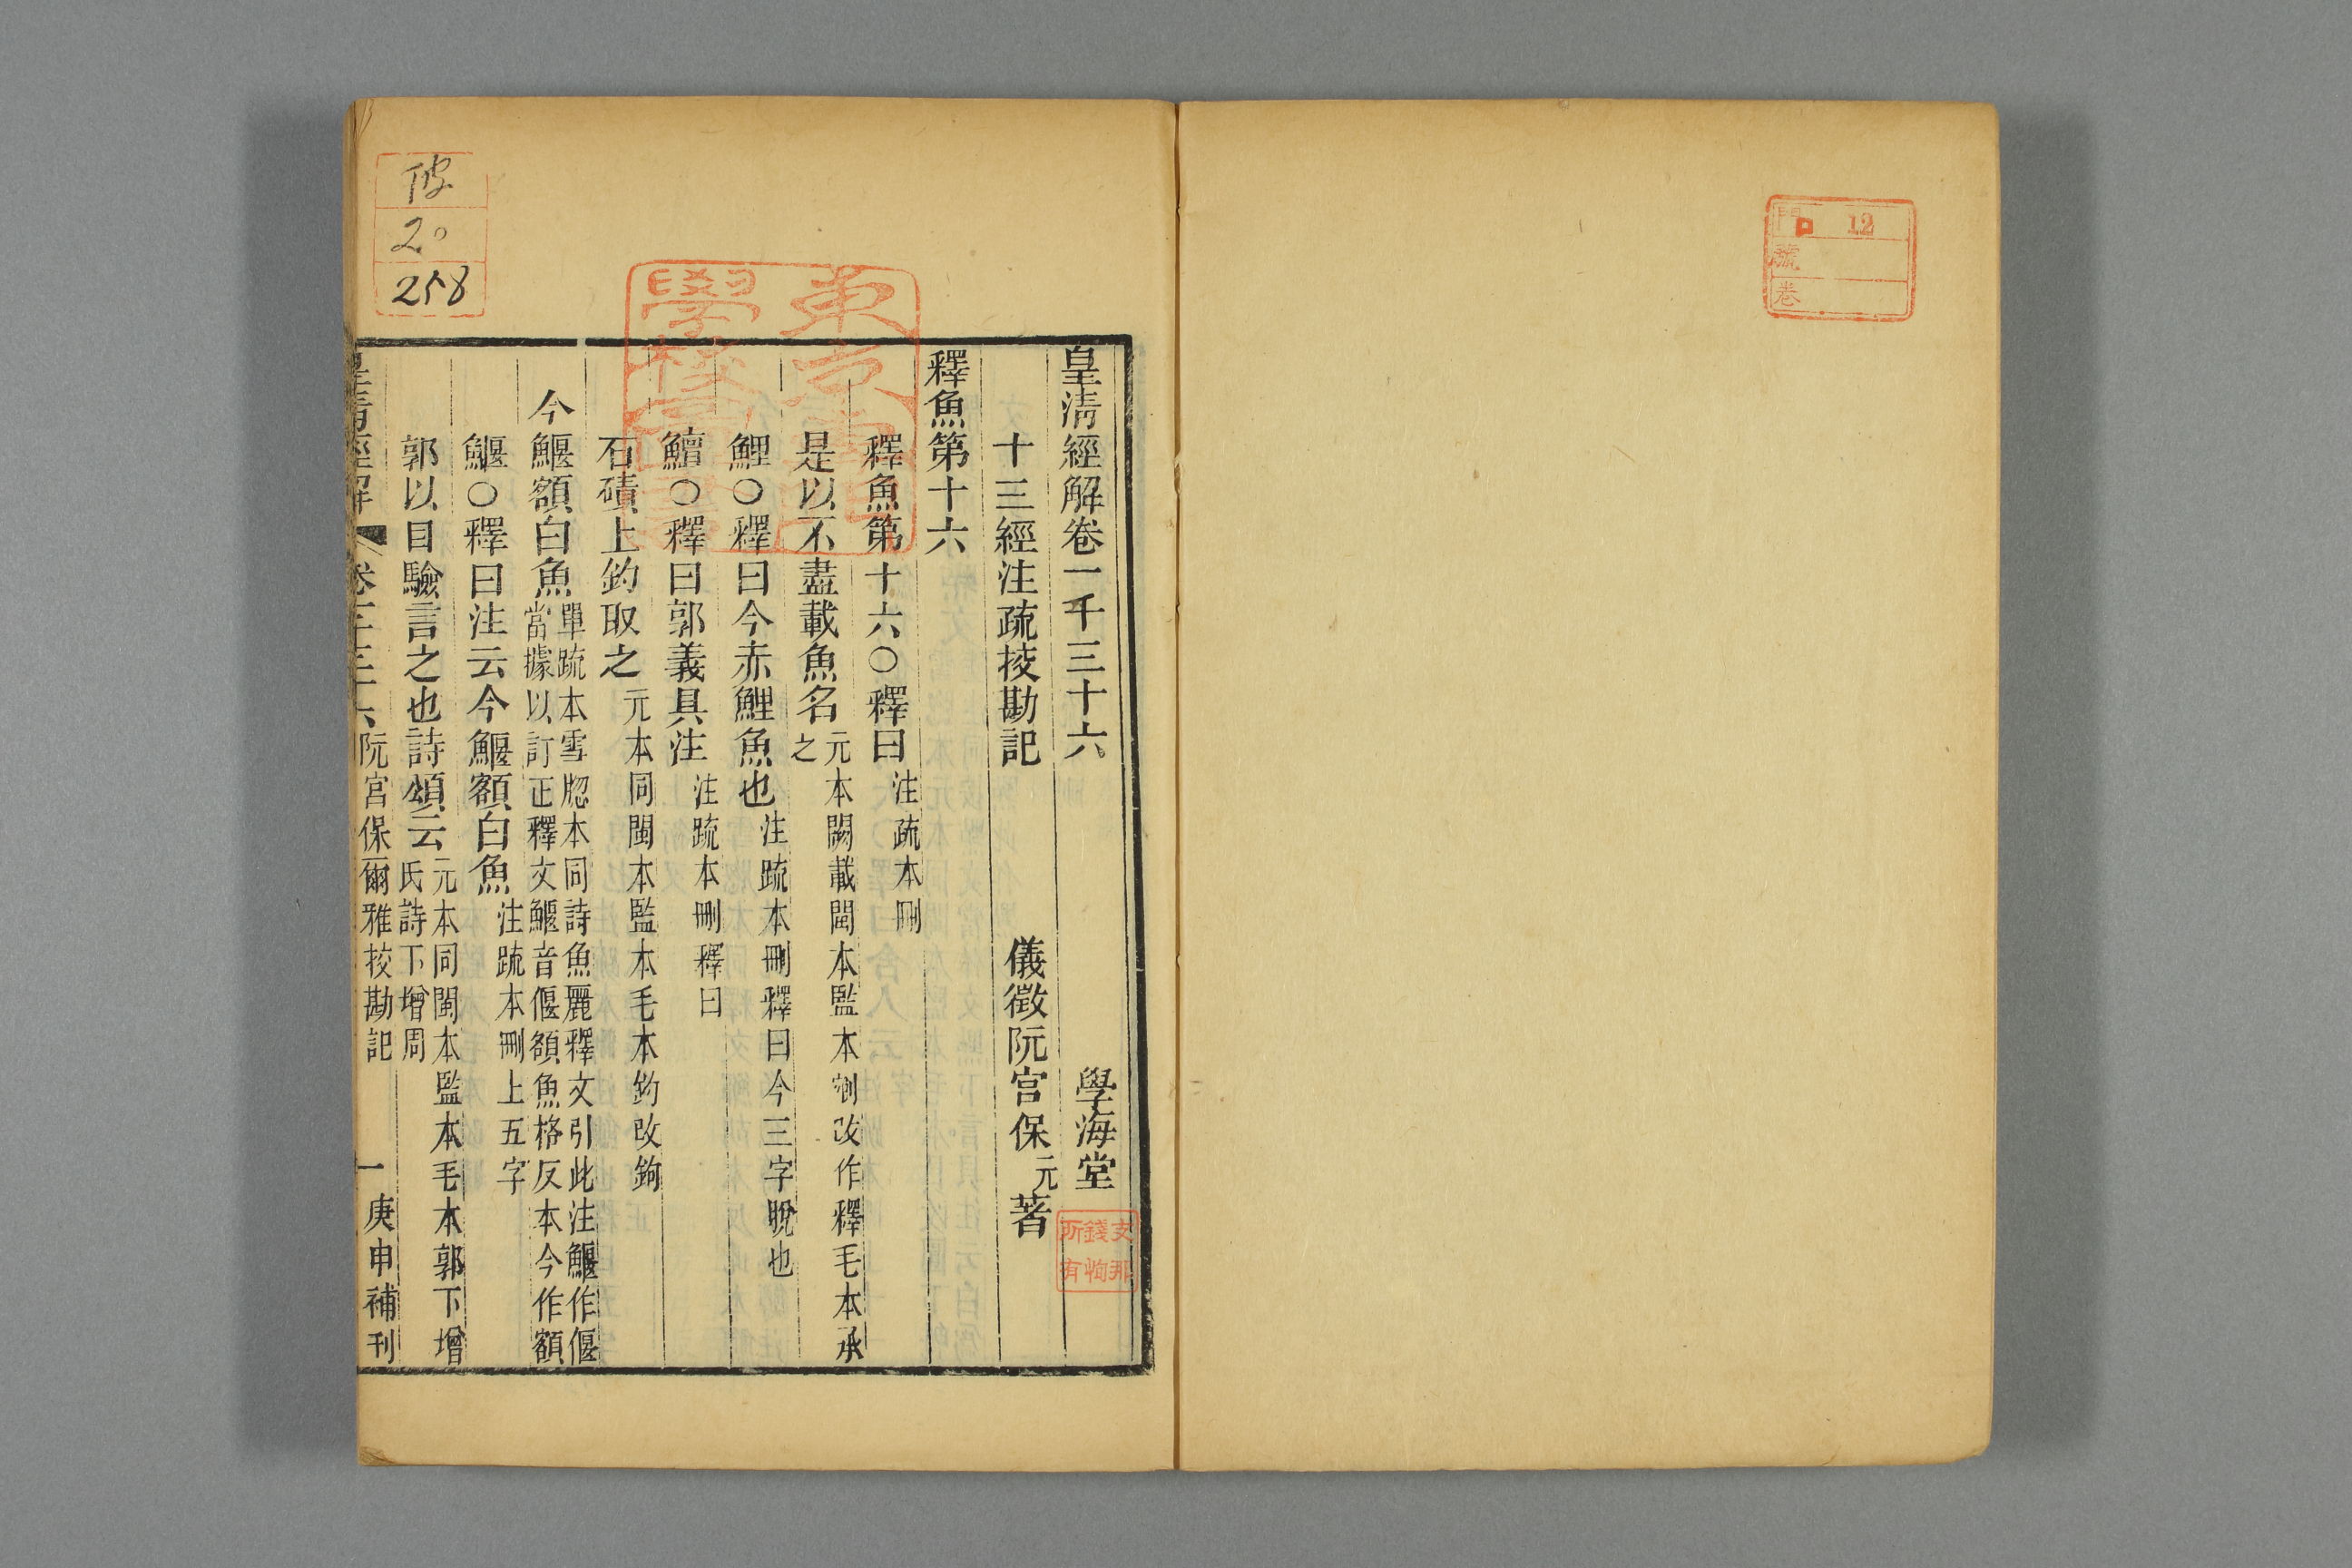 門 12
號
卷
皇淸經解卷一千三十六
學海堂
十三經注疏挍勘記
儀徵阮宮保元著
釋魚第十六
釋魚第十六○釋曰注疏本刪
是以不盡載魚名元本闕載閩本監本剜改作釋毛本承
之
鯉○釋曰今赤鯉魚也注疏本刪釋曰今三字脫也
鱣○釋曰郭義具注注疏本刪釋曰
石磧上釣取之元本同閩本監本毛本釣改鉤
今鰋額白魚單疏本雪牎本同詩魚麗釋文引此注鰋作偃
當據以訂正釋文鰋音偃額魚格反本今作額
鰋○釋曰注云今鰋額白魚注疏本刪上五字
郭以目驗言之也詩頌云元本同閩本監本毛本郭下增
氏詩下增周
皇淸經解 卷一千三十六 阮宮保爾雅挍勘記 一 庚申補刊
東京
學校
支那
錢恂
所有
20
258